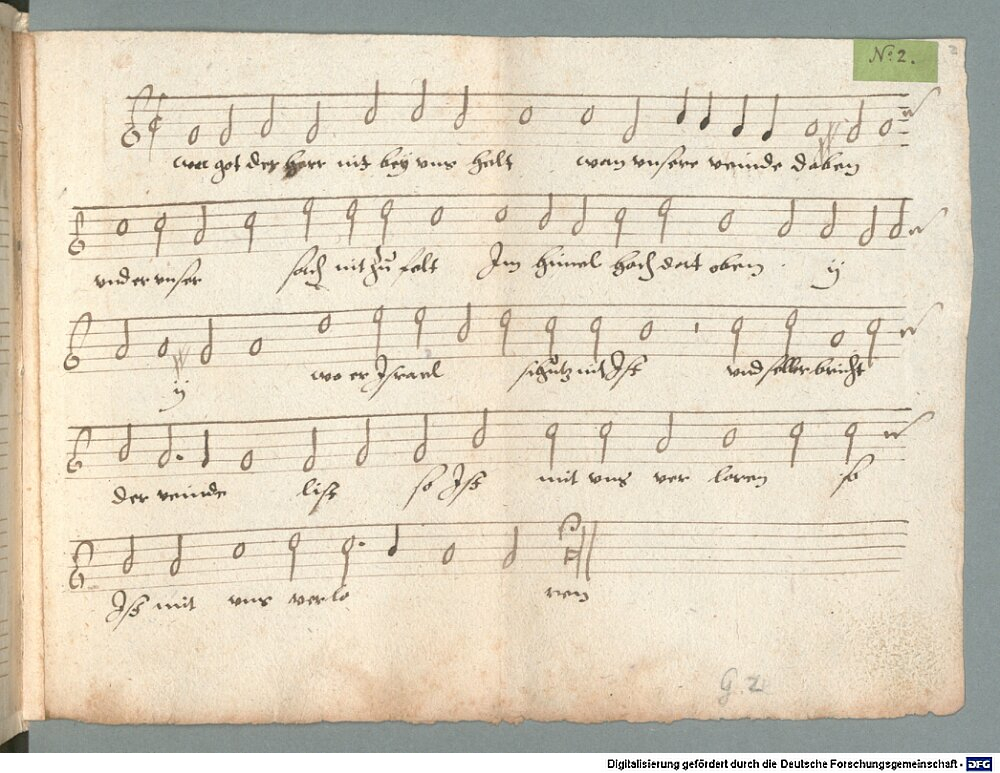 No: 2.
2
wo got der herr nit bey uns helt wan unsere veinde doben
und er unser sach nit zů felt Im himel hoch dort oben ij
ij wo er Israel schutz nit Ist und selber bricht
der veinde list so Ist mit uns ver loren so
Ist mit uns verlo ren
G. 2
Digitalisierung gefördert durch die Deutsche Forschungsgemeinschaft - DFG